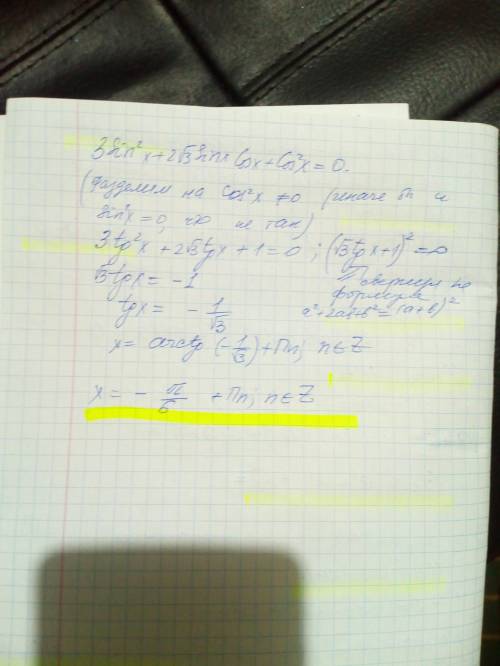 3Sin²x+2√3Sinx Cosx+Cos²x=0.
(Разделим на Cos²x ≠0 (иначе бы и
Sin²x=0, что не так)
3tg²x+2√3tgx+1=0 ; (√3tgx+1)²=0
√3tgx= -1
свернули по
формуле
tgx= - 1/√3
a²+2ab+b²=(a+b)²
x= arctg (-1/√3)+Πn; n∈Z
x= - π/6 +Πn; n∈Z